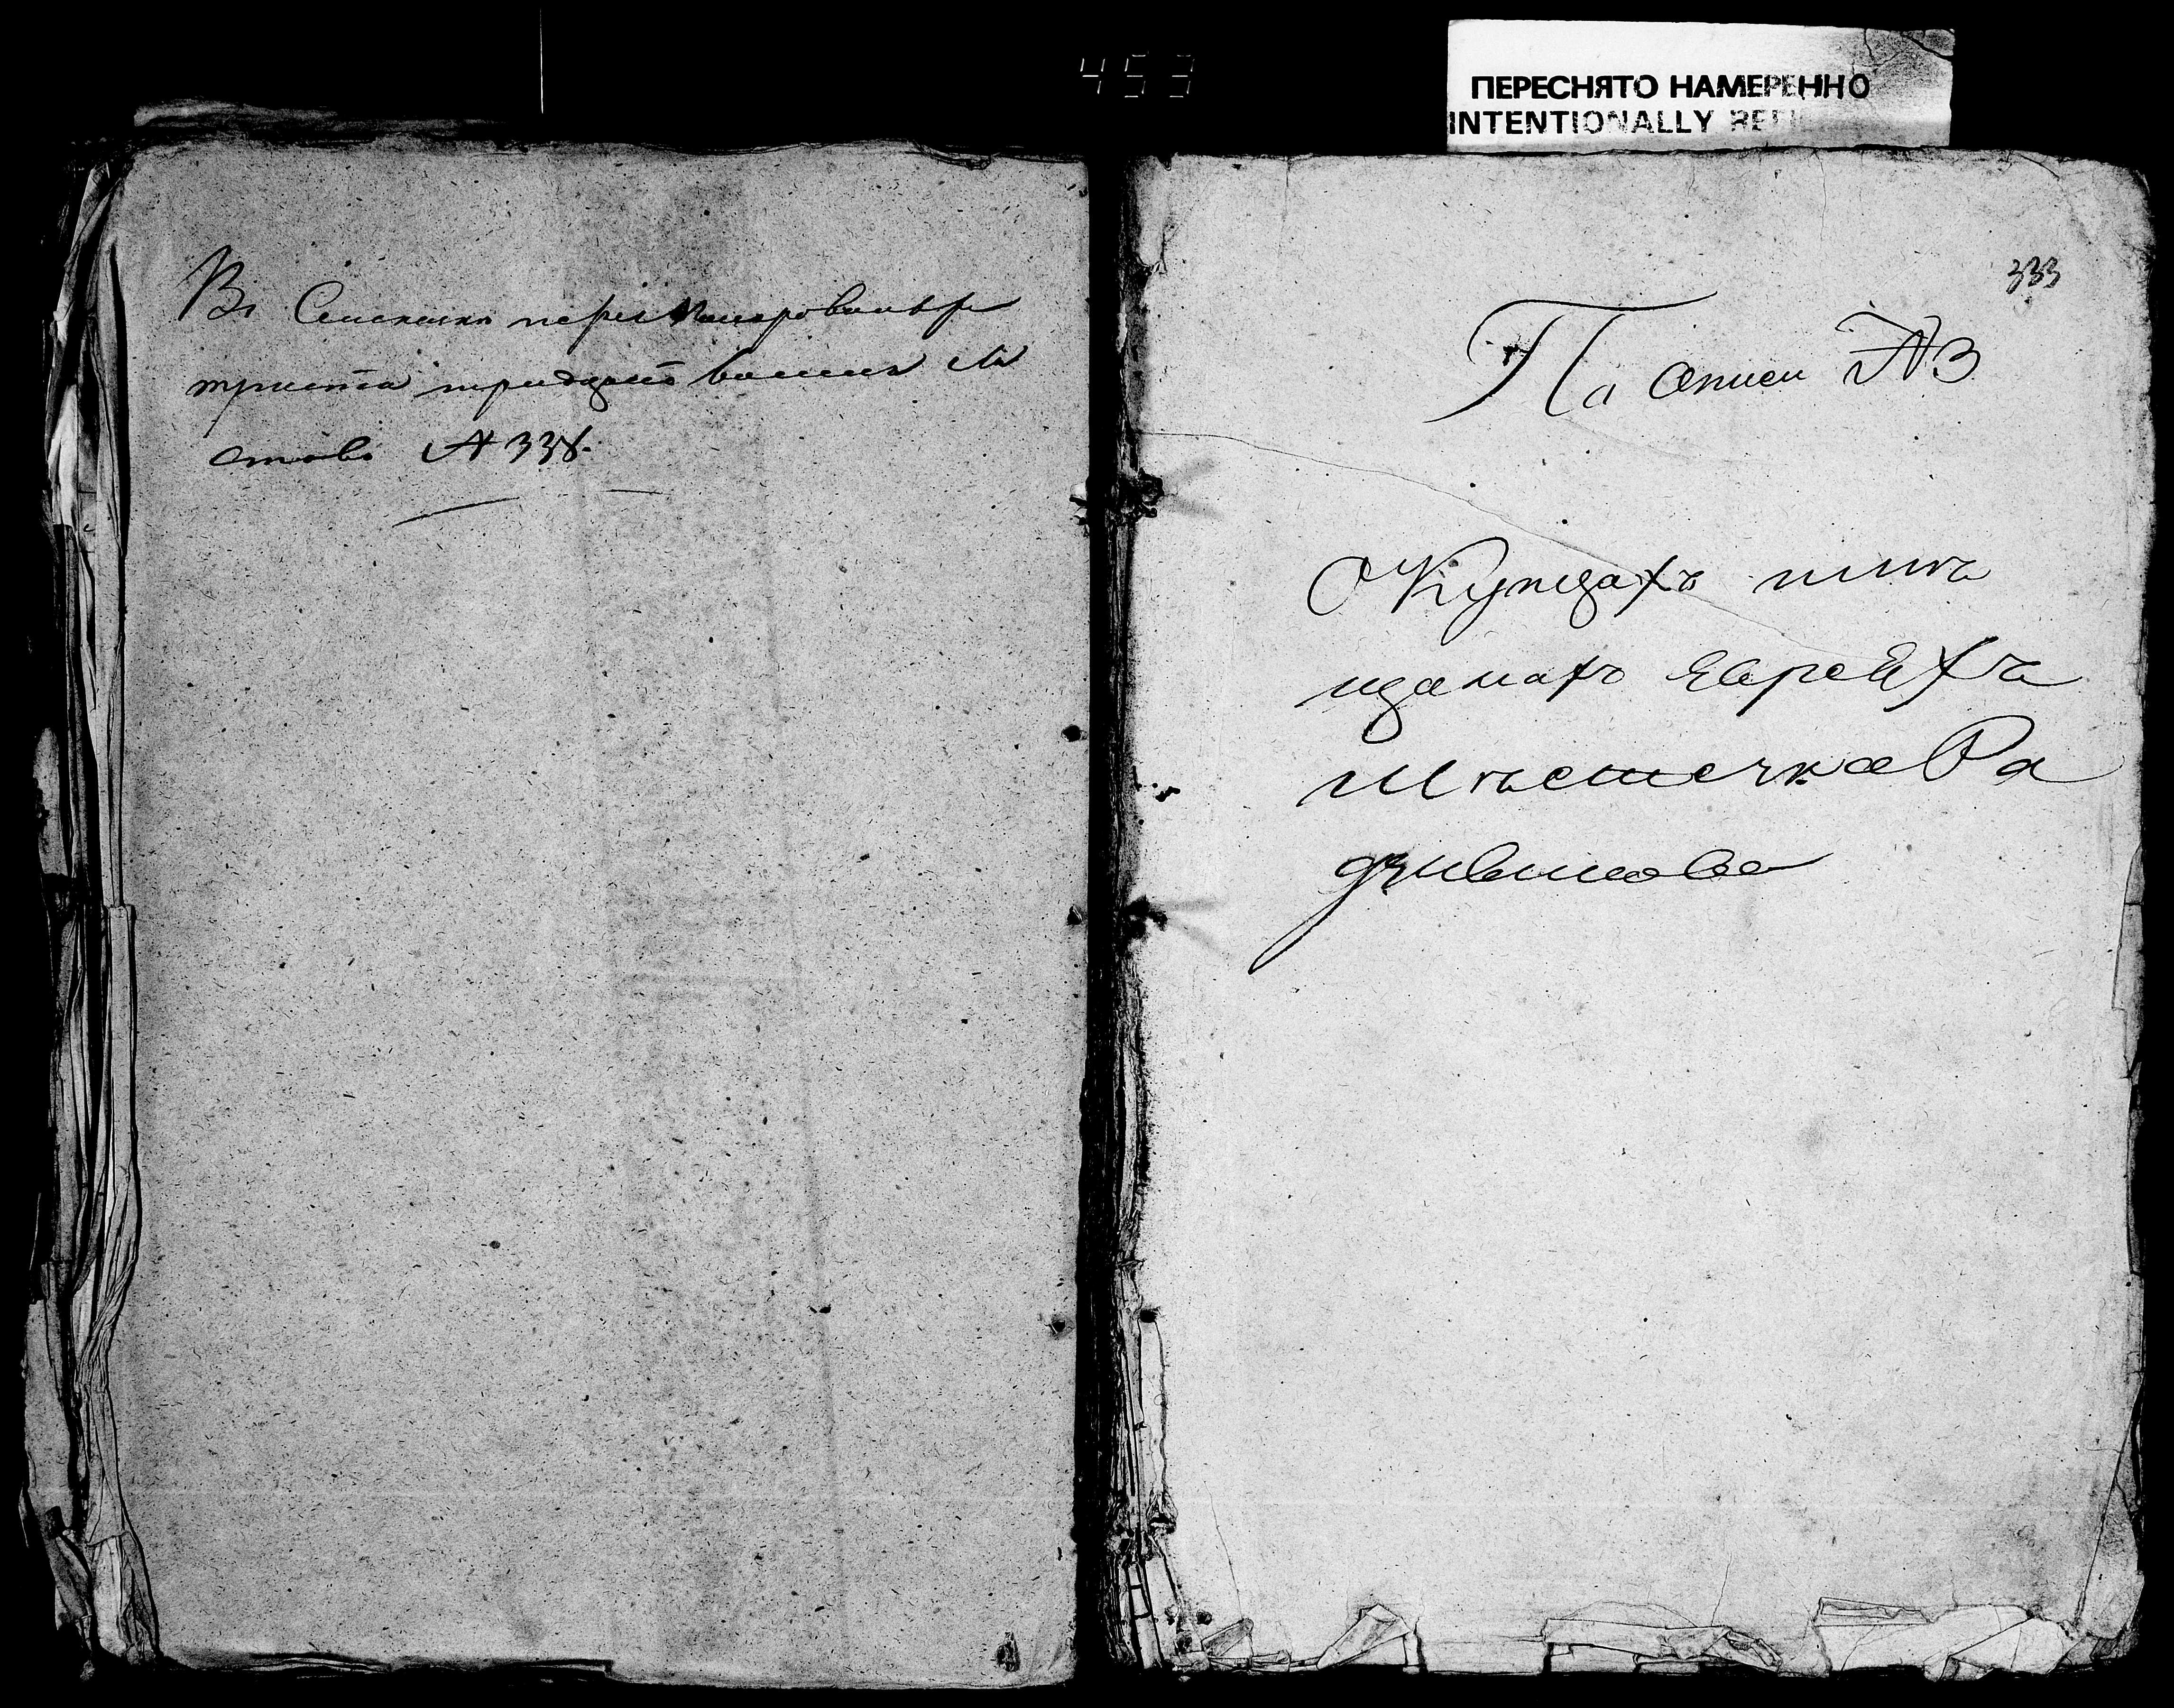 453
ПЕРЕСНЯТО НАМЕРЕННО
INTENTIONALLY REFI
Въ Семъ
триста тридцать восемь ли
стовъ № 338.
333
По описи № 3
О Купцахъ и мѣ
щанахъ Евреяхъ
Мѣстечка Ра
дзивилова